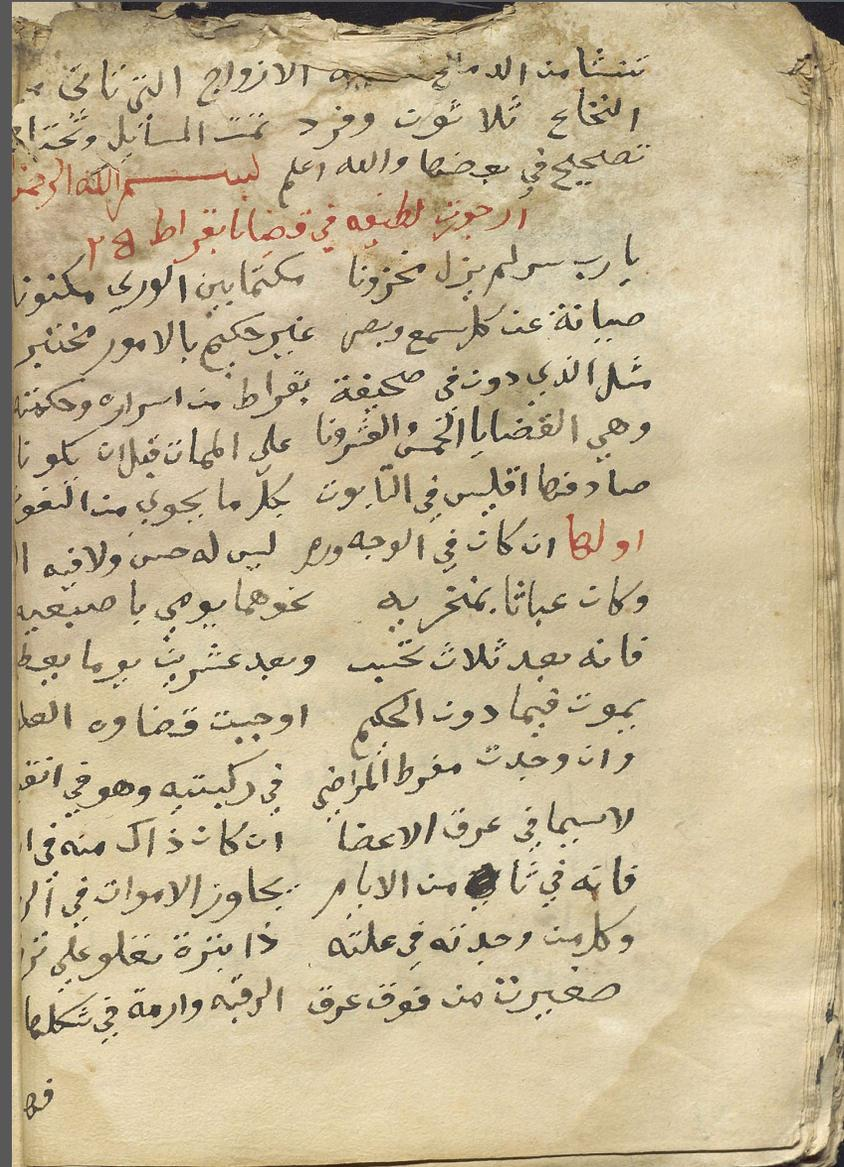 تنشا من الدماغ سبعه الازواج التي تاتي من
النخاع ثلاثون وفرد تمت المسايل وتحتاج
تصحيح في بعضها والله اعلم بسم الله الرحمن
ارجوزة لطيفه في قضايا بقراط ٢٥
يا رب سر لم يزل مخزونا مكتما بين الورى مكنونا
صيانة عن كل سمع وبصر غير حكيم بالامور مختبر
مثل الذي دون في صحيفة بقراط من اسراره وحكمته
وهي القضايا الخمس والعشرونا على الممات قبل ان يكونا
صادفها اقليس في التابوت بكل ما يحوي من النعوت
اولها ان كان في الوجه ورم ليس له حس ولا فيه
وكان عباثا بمنخريه نحوهما يومي باصبعيه
فانه بعد ثلاث تحتسب وبعد عشرين يوما
يموت فيما دون الحكيم اوجبت قضاوه
وان وجدت مفرط المراض في ركبتيه وهو في
لاسيما في عرق الاعضا ان كان ذاك منه في
فانه في ثامن الايام يجاور الاموات في
وكل من وجدته في علته ذا بثرة تعلو على
صغيرة من فوق عرق الرقبه وارمة في شكلها
فها